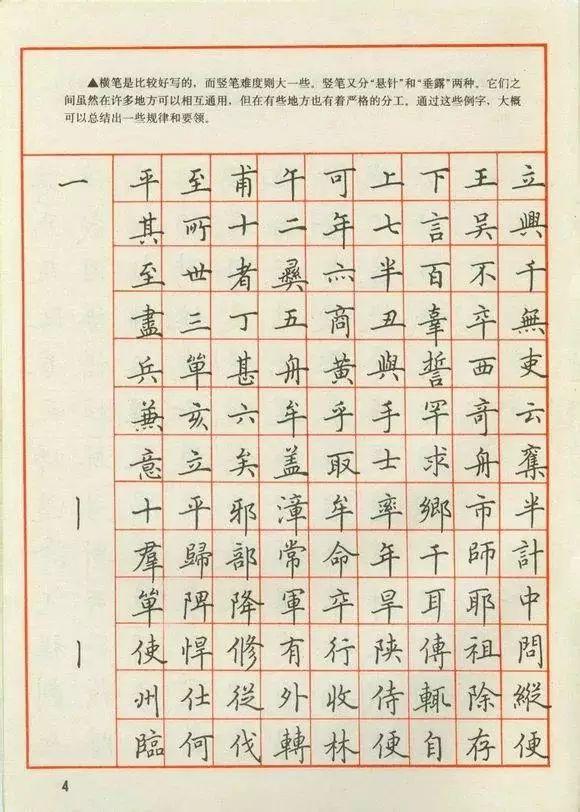 ▲横笔是比较好写的，而竖笔难度则大一些。竖笔又分“悬针”和“垂露”两种。它们之
间虽然在许多地方可以相互通用，但在有些地方也有着严格的分工。通过这些例字，大概
可以总结出一些规律和要领。
一 平 至 甫 午 可 上 下 王 立
其 所 十 二 年 七 言 吴 興
至 世 者 彝 六 半 百 不 千
盡 三 丁 五 商 丑 辜 卒 無
兵 單 甚 舟 黄 與 誓 西 吏
兼 亥 六 牟 乎 手 罕 奇 云
意 立 矣 盖 取 士 求 舟 奮
丨 十 平 邪 漳 牟 率 鄉 市 半
羣 歸 部 常 命 年 干 師 計
單 陴 降 軍 卒 旱 耳 耶 中
丨 使 悍 修 有 行 陕 傳 祖 問
州 仕 從 外 收 侍 輒 除 縱
臨 何 伐 轉 林 便 自 存 便
4